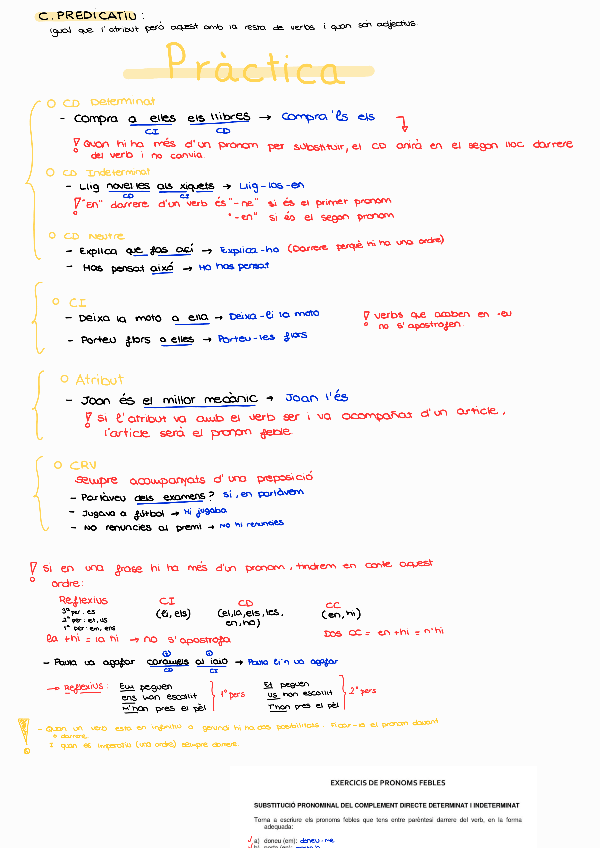 C. PREDICATIU:
igual que l'atribut però aquest amb la resta de verbs i quan són adjectius.
Pràctica
○ CD Determinat
- Compra a elles els llibres → Compra'ls els
CI CD
! Quan hi ha més d'un pronom per substituir, el CD anirà en el segon lloc darrere
del verb i no canvia.
○ CD Indeterminat
- Llig novel·les als xiquets → Llig-los-en
CD CI
! "En" darrere d'un verb és "-ne" si és el primer pronom
"-en" si és el segon pronom
○ CD Neutre
- Explica que fas açí → Explica-ho (Darrere perquè hi ha una ordre)
- Has pensat aixó → Ho has pensat
○ CI
- Deixa la moto a ella → Deixa-li la moto
! verbs que acaben en -eu
no s'apostrofen.
- Porteu flors a elles → Porteu-les flors
○ Atribut
- Joan és el millor mecànic → Joan l'és
! Si l'atribut va amb el verb ser i va acompañat d'un article,
l'article serà el pronom feble
○ CRV
Sempre acompanyats d'una preposició
- Parlàveu dels examens? Si, en parlàvem
- Jugava a fútbol → Hi jugaba
- No renuncies al premi → No hi renuncies
! Si en una frase hi ha més d'un pronom, tindrem en conte aquest
ordre:
Reflexius CI CD CC
3ª per: es (li, els) (el,la,els,les, (en, hi)
2ª per: et, us en,ho)
1ª per: em, ens
la +hi = la hi → no s'apostrofa
Dos CC = en +hi = n'hi
- Paula va agafar caramels al iaio → Paula li'n va agafar
CD CI
→ Reflexius: Em peguen Et peguen
ens han escollit 1ª pers us han escollit 2ª pers
M'han pres el pèl T'han pres el pèl
! - Quan un verb esta en infinitiu o gerundi hi ha dos posibilitats. Ficar-lo el pronom davant
o darrere.
I quan és imperatiu (una ordre) sempre darrere.
EXERCICIS DE PRONOMS FEBLES
SUBSTITUCIÓ PRONOMINAL DEL COMPLEMENT DIRECTE DETERMINAT I INDETERMINAT
Torna a escriure els pronoms febles que tens entre parèntesi darrere del verb, en la forma
adequada:
a) doneu (em): doneu-me